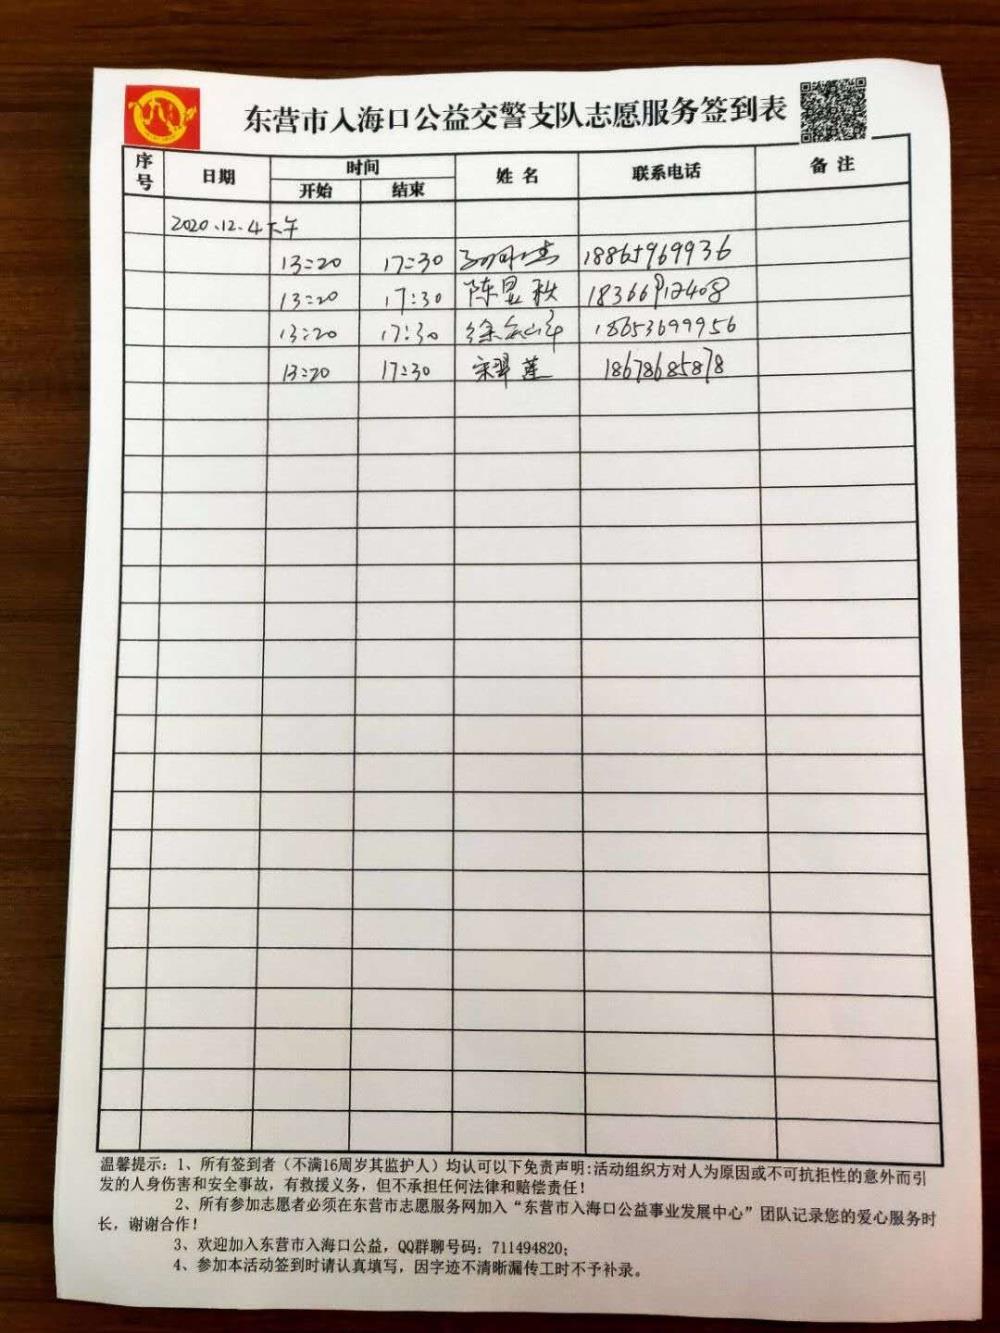 东营市入海口公益交警支队志愿服务签到表
序号 日期 时间 姓名 联系电话 备注
开始 结束
2020.12.4下午
13:20 17:30 18865969936
13:20 17:30 陈昱秩 18366912408
13:20 17:30 18653699956
13:20 17:30 宋翠莲 18678685878
温馨提示：1、所有签到者（不满16周岁其监护人）均认可以下免责声明:活动组织方对人为原因或不可抗拒性的意外而引
发的人身伤害和安全事故，有救援义务，但不承担任何法律和赔偿责任！
2、所有参加志愿者必须在东营市志愿服务网加入“东营市入海口公益事业发展中心”团队记录您的爱心服务时
长，谢谢合作！
3、欢迎加入东营市入海口公益，QQ群聊号码：711494820；
4、参加本活动签到时请认真填写，因字迹不清晰漏传工时不予补录。